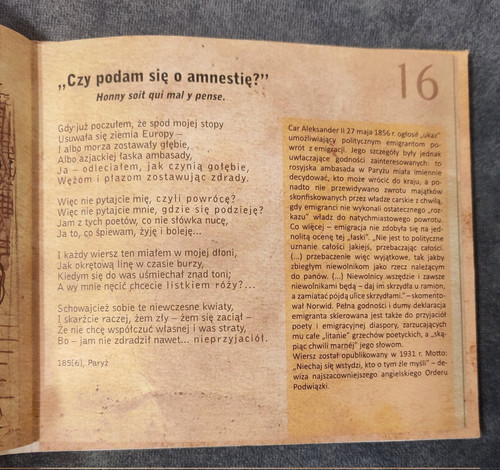 16
„Czy podam się o amnestię?”
Honny soit qui mal y pense.
Gdy już poczułem, że spod mojej stopy
Usuwała się ziemia Europy –
I albo morza zostawały głębie,
Albo azjackiej łaska ambasady,
Ja – odleciałem, jak czynią gołębie,
Wężom i płazom zostawując zdrady.
Więc nie pytajcie mię, czyli powrócę?
Więc nie pytajcie mnie, gdzie się podzieję?
Jam z tych poetów, co nie słówka nucę,
Ja to, co śpiewam, żyję i boleję...
I każdy wiersz ten miałem w mojej dłoni,
Jak okrętową linę w czasie burzy,
Kiedym się do was uśmiechał znad toni;
A wy mnie nęcić chcecie listkiem róży?...
Schowajcież sobie te niewczesne kwiaty,
I skarżcie raczej, żem zły – żem się zaciął –
Że nie chcę współczuć własnej i was straty,
Bo – jam nie zdradził nawet... nieprzyjaciół.
185[6], Paryż
Car Aleksander II 27 maja 1856 r. ogłosił „ukaz”
umożliwiający politycznym emigrantom po-
wrót z emigracji. Jego szczegóły były jednak
uwłaczające godności zainteresowanych: to
rosyjska ambasada w Paryżu miała imiennie
decydować, kto może wrócić do kraju, a po-
nadto nie przewidywano zwrotu majątków
skonfiskowanych przez władze carskie z chwilą,
gdy emigranci nie wykonali ostatecznego „roz-
kazu” władz do natychmiastowego powrotu.
Co więcej – emigracja nie zdobyła się na jed-
nolitą ocenę tej „łaski”. „Nie jest to polityczne
uznanie całości jakiejś, przebaczając całości.
(...) przebaczenie więc wyjątkowe, tak jakby
zbiegłym niewolnikom jako rzecz należącym
do panów. (...) Niewolnicy wszędzie i zawsze
niewolnikami będą – daj im skrzydła u ramion,
a zamiatać pójdą ulice skrzydłami.” – skomento-
wał Norwid. Pełna godności i dumy deklaracja
emigranta skierowana jest także do przyjaciół
poety i emigracyjnej diaspory, zarzucających
mu całe „litanie” grzechów poetyckich, a „ską-
piąc chwili marnéj” jego słowom.
Wiersz został opublikowany w 1931 r. Motto:
„Niechaj się wstydzi, kto o tym źle myśli” – de-
wiza najszacowniejszego angielskiego Orderu
Podwiązki.